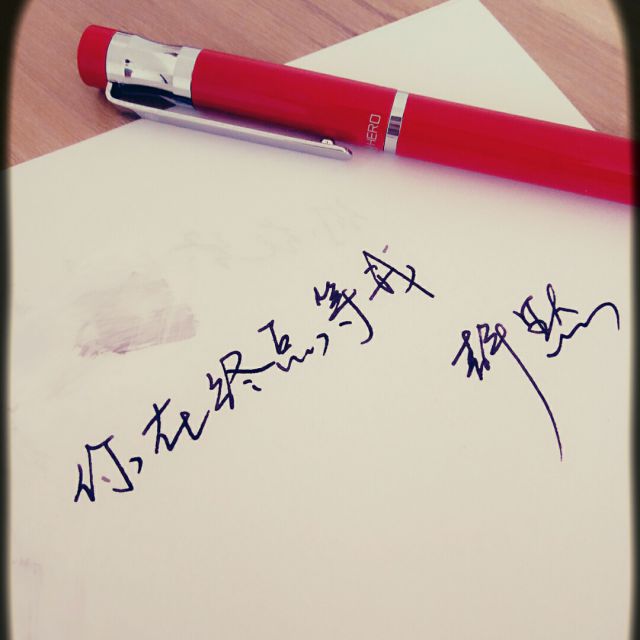 HERO
你在终点等我